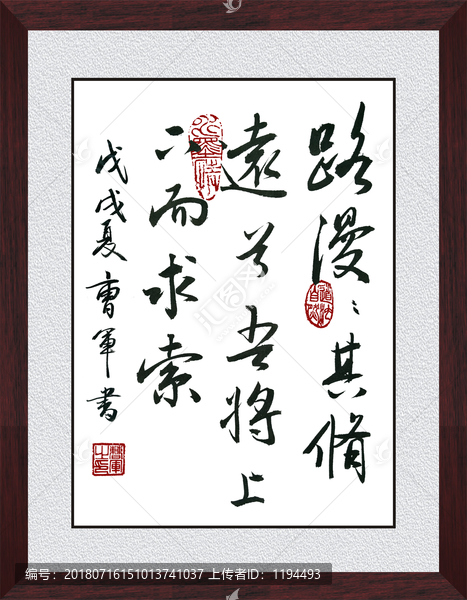 路漫〻其脩
遠兮吾将上
下而求索
戊戌夏曹軍書
编号：20180716151013741037 上传者ID：1194493